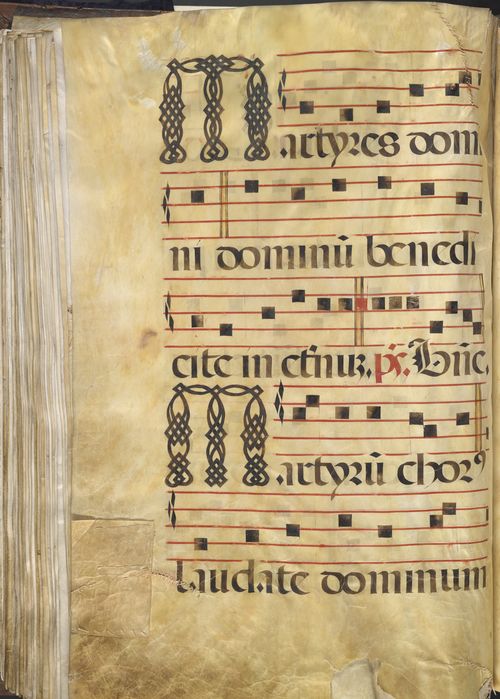 Martyres domi
ni dominū benedi
cite in eternuȝ. ps. Bn̄e.
Martyrū chorꝰ
laudate dominum